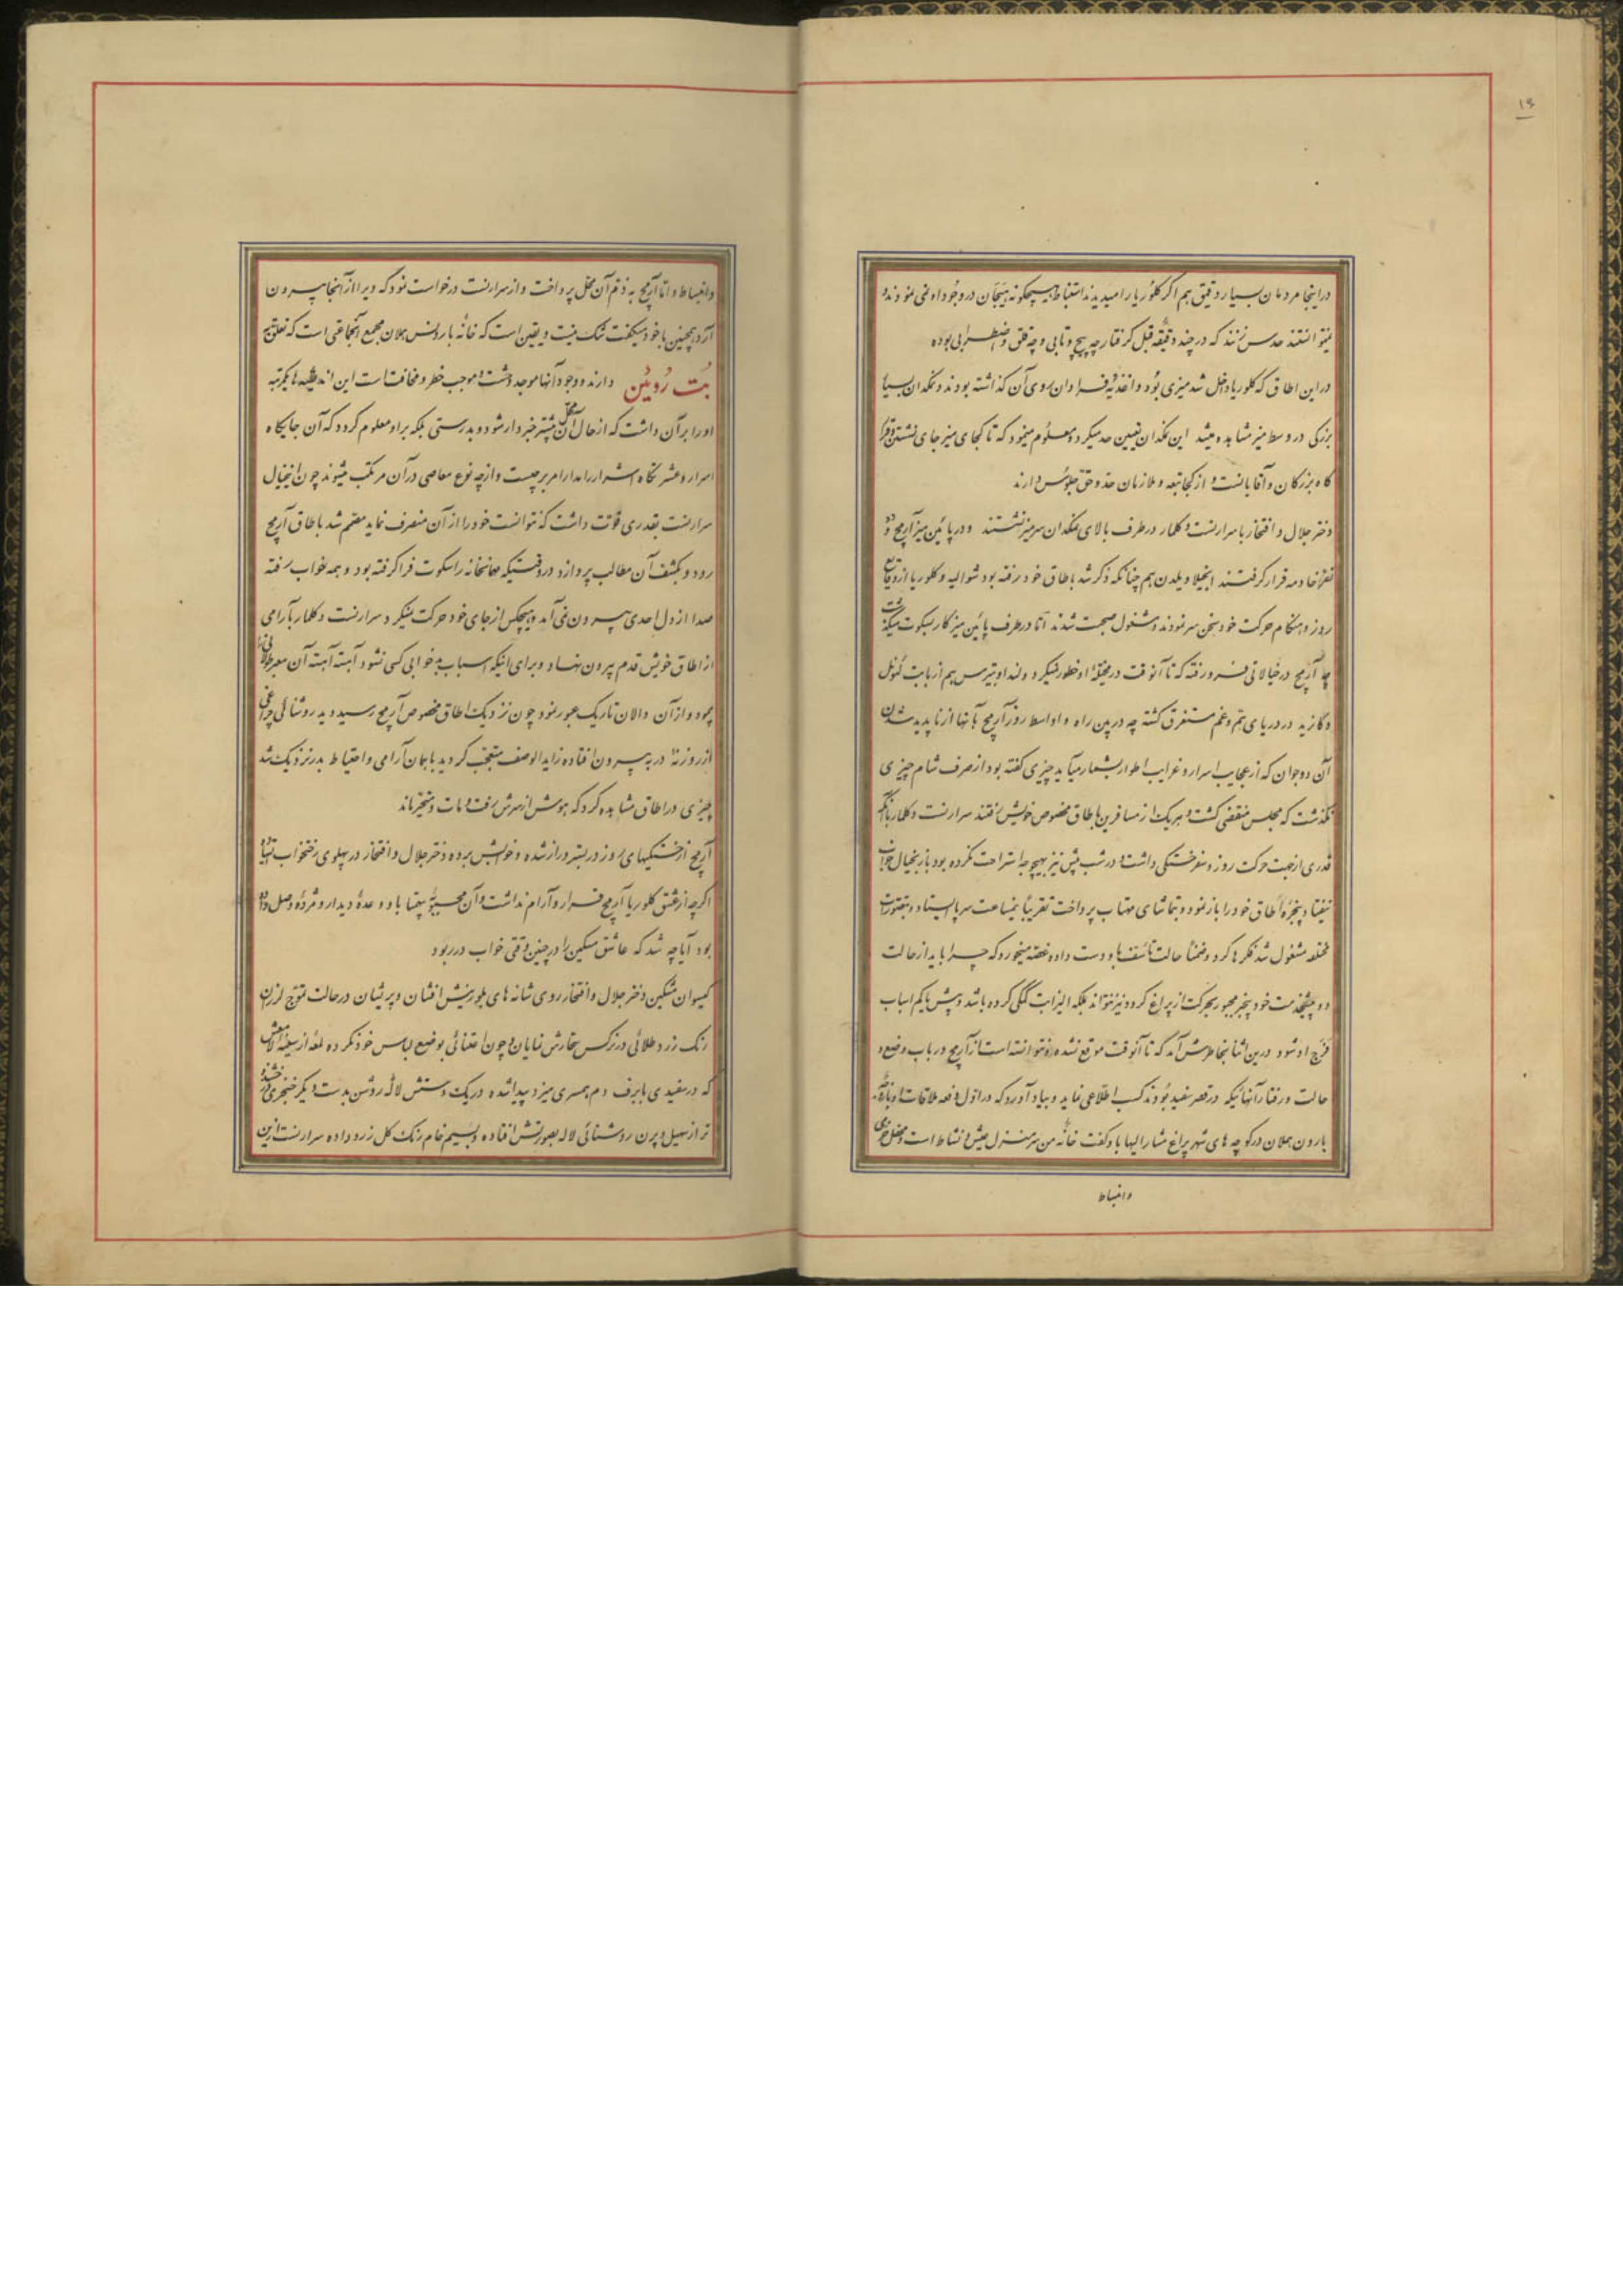 ۱۳
در اینجا مردمان بسیار دقیق هم اگر کلوریا را میدیدند استنباط هیچگونه هیجان در وجود او نمی نمودند و
نمیتوانستند حدس بزنند که در چند دقیقه قبل گرفتار چه پیچ و تابی و چه قلق و اضطرابی بوده
در این اطاق که کلوریا داخل شد میزی بود و اغذیه فراوان روی آن گذاشته بودند و نمکدان بسیار
بزرگی در وسط میز مشاهده میشد این نمکدان تعیین حد میکرد و معلوم مینمود که تا کجای میز جای نشستن و قرار
گاه بزرگان و آقایانست و از کجا تبعه و ملازمان حد و حق جلوس دارند
دختر جلال و افتخار با سرارنست و کلمار در طرف بالای نمکدان سر میز نشستند و در پائین میز آرمج و دو
نفر خادمه قرار گرفتند انجیلا و یلدن هم چنانکه ذکر شد باطاق خود رفته بود شوالیه و کلوریا از وقایع
روز و هنگام حرکت خود سخن سر نمودند و مشغول صحبت شدند اما در طرف پائین میز کار بسکوت میگذشت
چه آرمج در خیالاتی فرو رفته که تا آنوقت در مخیله او خطور نمیکرد و لندا و بتیرس هم از بابت لیونل
و کازید در دریای هم و غم مستغرق گشته چه در بین راه و اواسط روز آرمج بآنها از ناپدید شدن
آن دو جوان که از عجایب اسرار و غرایب اطوار بشمار میآید چیزی گفته بود از صرف شام چیزی
نگذشت که مجلس منقضی گشت و هر یک از مسافرین باطاق مخصوص خویش رفتند سرارنست و کلمار با آنکه
قدری از جهت حرکت روز و سفر خستگی داشت و در شب پیش نیز بهیچوجه استراحت نکرده بود باز بخیال خواب
نیفتاد پنجره اطاق خود را باز نمود و بتماشای مهتاب پرداخت تقریباً نیمساعت سر پا ایستاد و بتصورات
مختلفه مشغول شد فکرها کرد و ضمناً حالت تأسف باو دست داده غصه میخورد که چرا باید از حالت
دو پیشخدمت خود بیخبر مجبور بحرکت از پراغ گردد نیز نتواند بلکه الیزابت گلگی کرده باشد و پیش یا کم اسباب
فرج او شود در بین اثنا بخاطرش آمد که تا آنوقت موقع نشده و نتوانسته است از آرمج در باب وضع و
حالت و رفتار آنهائیکه در قصر سفید بودند کسب اطلاعی نماید و بیاد آورد که در اول دفعه ملاقات او با
بارون هملان در کوچه های شهر پراغ مشارالیها باو گفت خانه من سر منزل عیش و نشاط است و محفل خرمی
و انبساط
و انبساط و اما آرمج به ذم آن محفل پرداخت و از سرارنست درخواست نمود که ویرا از آنجا بیرون
آرد همچنین با خود میگفت شک نیست و یقین است که خانه بارونس هملان مجمع آنجماعتی است که تعلق به
بُت رُوئین دارند و وجود آنها موجد وحشت و موجب خطر و مخافت است این اندیشه ها یکمرتبه
او را بر آن داشت که از حال آن محفل بیشتر خبردار شود و بدرستی بلکه بر او معلوم گردد که آن جایگاه
اسرار و عشرتگاه اشرار را مدار امر بر چیست و از چه نوع معاصی در آن مرتکب میشوند چون اینخیال
سرارنست بقدری قوت داشت که نتوانست خود را از آن منصرف نماید مصمم شد باطاق آرمج
رود و بکشف آن مطالب پردازد در وقتیکه مهمانخانه را سکوت فرا گرفته بود و همه خواب رفته
صدا از دل احدی بیرون نمی آمد و هیچکس از جای خود حرکت نمیکرد سرارنست و کلمار بآرامی
از اطاق خویش قدم بیرون نهاد و برای اینکه اسباب بدخوابی کسی نشود آهسته آهسته آن معبر طولانی را
پیمود و از آن دالان تاریک عبور نمود چون نزدیک اطاق مخصوص آرمج رسید دید روشنائی چراغی
از روزنه در به بیرون افتاده زاید الوصف متعجب گردید با همان آرامی و احتیاط بدر نزدیک شد
چیزی در اطاق مشاهده کرد که هوش از سرش رفت و مات و متحیر ماند
آرمج از خستگیهای روز در بستر دراز شده و خوابش برده دختر جلال و افتخار در پهلوی رختخواب
اگرچه از عشق کلوریا آرمج قرار و آرام نداشت و آن محبوبه بیهمتا باو وعده دیدار و مژده وصل داده
بود آیا چه شد که عاشق مسکین را در چنین وقتی خواب در ربود
گیسوان مشکین دختر جلال و افتخار روی شانه های بلورینش افشان و پریشان در حالت تموج لرزان
رنگ زرد طلائی در نرگس سحارش نمایان و چون اعتنائی بوضع لباس خود نکرده لمعه از سینه
که در سفیدی با برف دم همسری میزد پیدا شده در یک دستش لاله روشن بدست دیگر خنجری درخشنده
تر از سهیل و پرن روشنائی لاله بصورتش افتاده و بسیم خام رنگ گل زرد داده سرارنست از این